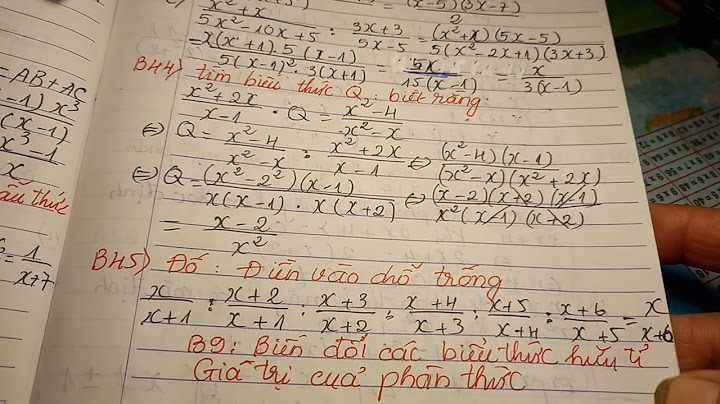 (x-5)(3x-7)
2
x²+x / 5x²-10x+5 : 3x+3 / 5x-5 = (x²+x)(5x-5) / 5(x²-2x+1)(3x+3)
= x(x+1).5(x-1) / 5(x-1)².3(x+1) = 5x / 15(x-1) = x / 3(x-1)
B44) tìm biểu thức Q. biết rằng
x²+2x / x-1 . Q = x²-4 / x²-x
⇔ Q = x²-4 / x²-x : x²+2x / x-1 ⇔ (x²-4)(x-1) / (x²-x)(x²+2x)
⇔ Q = (x²-2²)(x-1) / x(x-1).x(x+2) ⇔ (x-2)(x+2)(x-1) / x²(x-1)(x+2)
= x-2 / x²
B45) Đố: Điền vào chỗ trống
x / x+1 : x+2 / x+1 : x+3 / x+2 : x+4 / x+3 : x+5 / x+4 : x+6 / x+5 = x / x+6
B9: Biến đổi các biểu thức hữu tỉ
Giá trị cuả phân thức
= AB + AC
-1) x³
(x-1)
x³-1
x
ẫu thức
= 1 / x+7